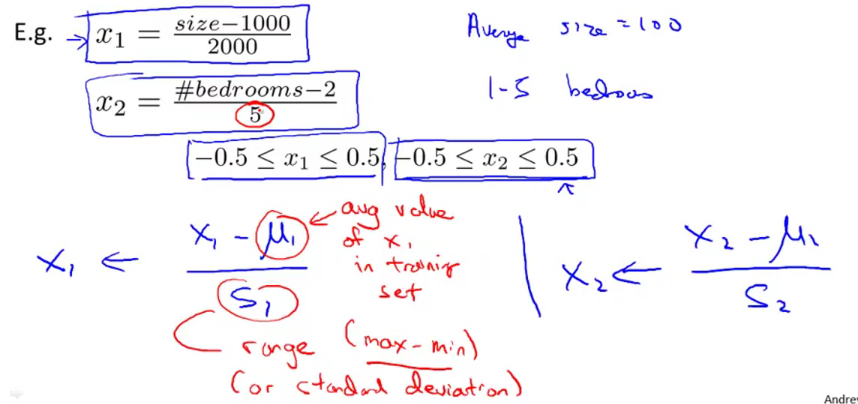 E.g. → x₁ = (size−1000)/2000
Average size = 100
x₂ = (#bedrooms−2)/5
1-5 bedrooms
−0.5 ≤ x₁ ≤ 0.5, −0.5 ≤ x₂ ≤ 0.5
x₁ ← (x₁ − μ₁)/S₁
avg value
of x₁
in training
set
x₂ ← (x₂ − μ₂)/S₂
range (max-min)
(or standard deviation)
Andrew